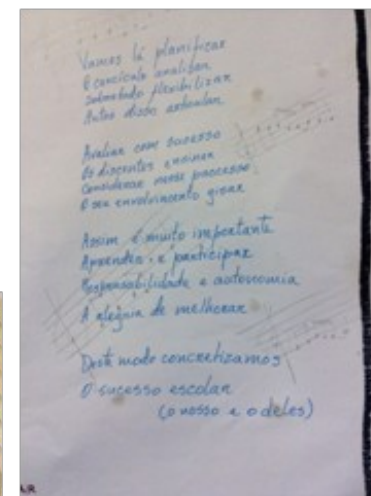 Vamos lá planificar
O currículo analisar
Sobretudo flexibilizar
Antes disso articular
Avaliar com sucesso
Os discentes ensinar
Considerar nesse processo
O seu envolvimento gisar
Assim é muito importante
Aprender e participar
Responsabilidade e autonomia
A alegria de melhorar
Deste modo concretizamos
O sucesso escolar
(o nosso e o deles)